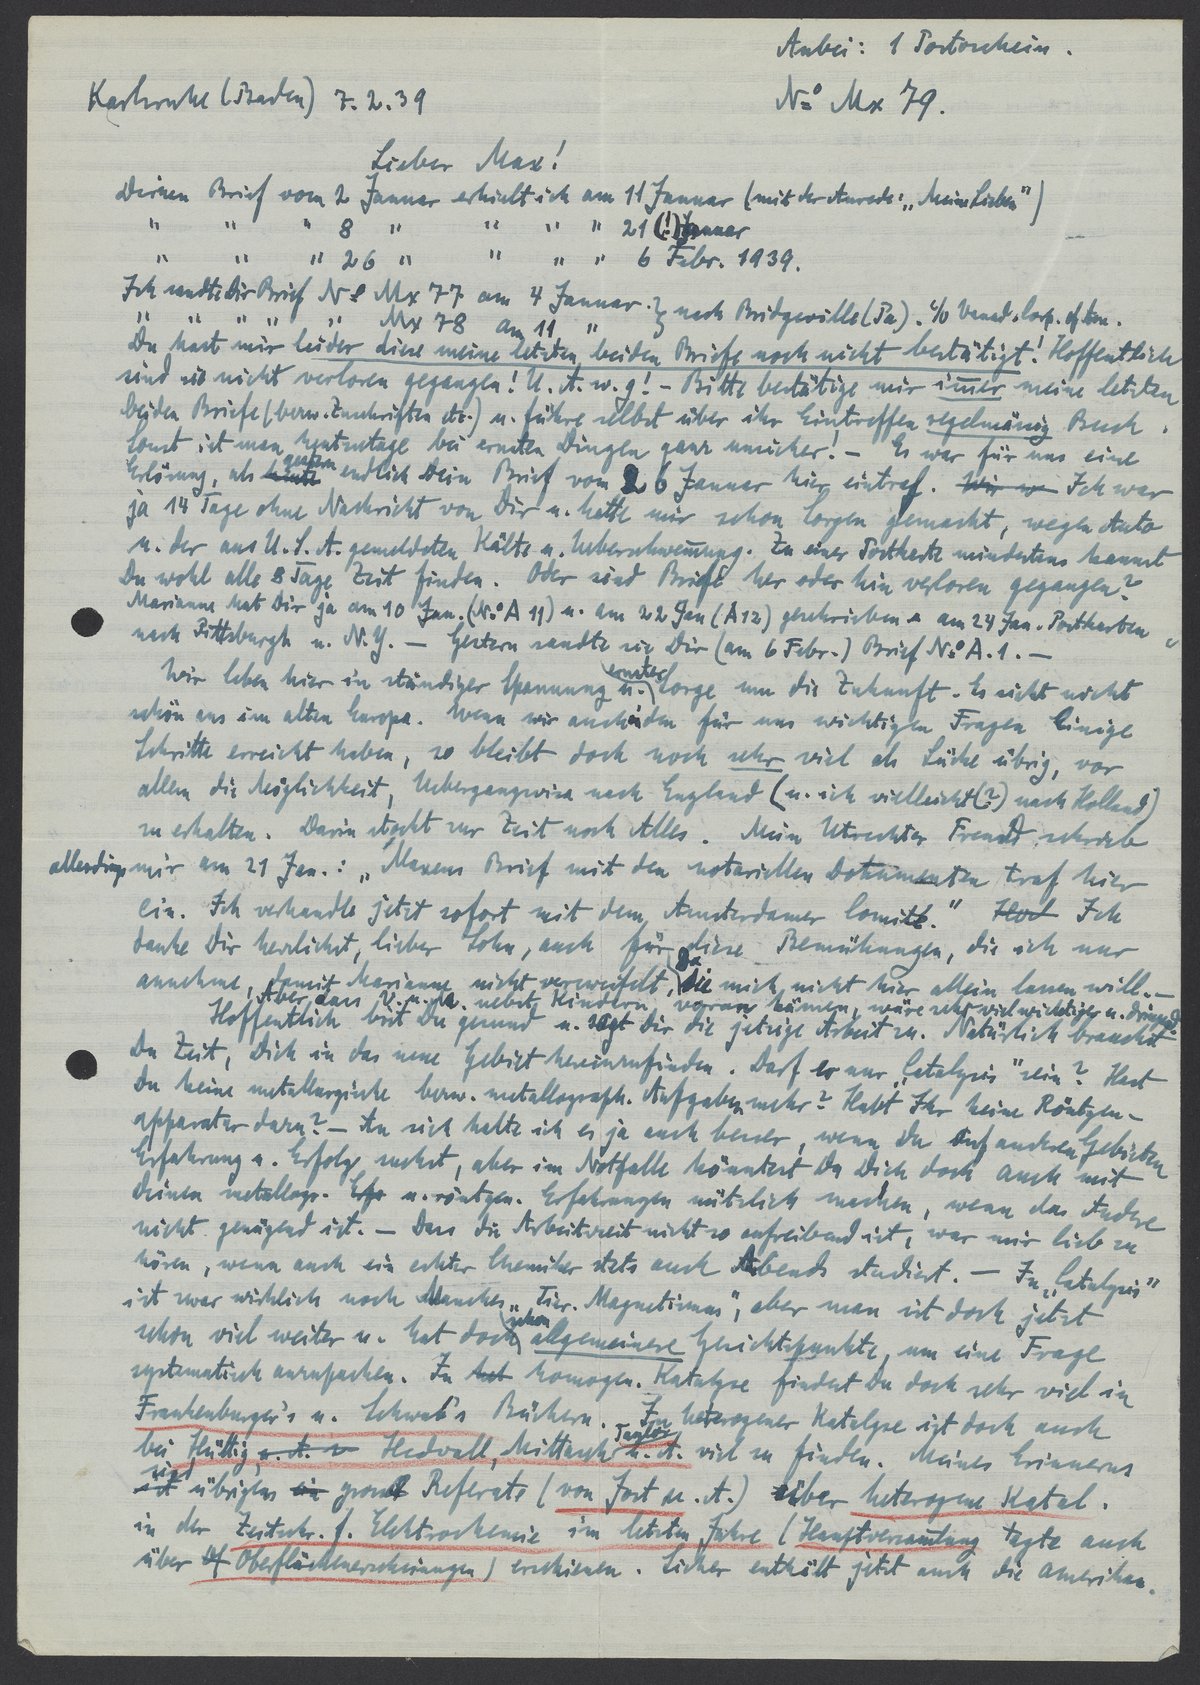 Anbei: 1 Portoschein.
Karlsruhe (Baden) 7.2.39
No Mx 79.
Lieber Max!
Deinen Brief vom 2 Januar erhielt ich am 11 Januar (mit der Anrede: „Meine Lieben")
" " " 8 " " " " 21 (!) Januar
" " " 26 " " " " 6 Febr. 1939.
Ich sandte Dir Brief No Mx 77 am 4 Januar } nach Bridgeville (Pa). c/o Vanad. Corp. of Am.
" " " " " Mx 78 am 11 "
Du hast mir leider diese meine letzten beiden Briefe noch nicht bestätigt! Hoffentlich
sind sie nicht verloren gegangen! U. A. w. g! – Bitte bestätige mir immer meine letzten
beiden Briefe (bezw. Zuschriften etc.) u. führe selbst über ihr Eintreffen regelmässig Buch.
Sonst ist man heutzutage bei ernsten Dingen ganz unsicher! – Es war für uns eine
Erlösung, als heute gestern endlich Dein Brief vom 26 Januar hier eintraf. Wir w Ich war
ja 14 Tage ohne Nachricht von Dir u. hatte mir schon Sorgen gemacht, wegen Auto
u. der aus U.S.A. gemeldeten Kälte u. Ueberschwemmung. Zu einer Postkarte mindestens kannst
Du wohl alle 8 Tage Zeit finden. Oder sind Briefe her oder hin verloren gegangen?
Marianne hat Dir ja am 10 Jan. (No A 11) u. am 22 Jan (A12) geschrieben u am 24 Jan. Postkarten
nach Pittsburgh u. N.Y. – Gestern sandte sie Dir (am 6 Febr.) Brief No A.1. –
Wir leben hier in ständiger Spannung u. ernster Sorge um die Zukunft. Es sieht nicht
schön aus im alten Europa. Wenn wir auch in den für uns wichtigen Fragen Einige
Schritte erreicht haben, so bleibt doch noch sehr viel als Lücke übrig, vor
allem die Möglichkeit, Uebergangsvisa nach England (u. ich vielleicht (?) nach Holland)
zu erhalten. Darin stockt zur Zeit noch Alles. Mein Utrechter Freund schrieb
allerdings mir am 21 Jan.: „Maxens Brief mit den notariellen Dokumenten traf hier
ein. Ich verhandle jetzt sofort mit dem Amsterdamer Comité." Ich
danke Dir herzlichst, lieber Sohn, auch für diese Bemühungen, die ich nur
annehme, damit Marianne nicht verzweifelt, da die mich nicht hier allein lassen will. –
Aber dass V. u. M. nebst Kindern voran kämen, wäre sehr viel wichtiger u. dringend.
Hoffentlich bist Du gesund u. sagt Dir die jetzige Arbeit zu. Natürlich brauchst
Du Zeit, Dich in das neue Gebiet hereinzufinden. Darf es nur „Catalysis" sein? Hast
Du keine metallurgische bezw. metallograph. Aufgaben mehr? Habt Ihr keine Röntgen-
apparatur dazu? – An sich halte ich es ja auch besser, wenn Du auf anderen Gebieten
Erfahrung u. Erfolge suchst, aber im Notfalle könntest Du Dich doch auch mit
Deinen metallogr. Erfr u. röntgen. Erfahrungen nützlich machen, wenn das Andere
nicht genügend ist. – Dass die Arbeitszeit nicht so aufreibend ist, war mir lieb zu
hören, wenn auch ein echter Chemiker stets auch Abends studiert. – In „Catalysis"
ist zwar wirklich noch Manches „Tier. Magnetismus", aber man ist doch jetzt
schon viel weiter u. hat doch schon allgemeinere Gesichtspunkte, um eine Frage
systematisch anzupacken. In het homogen. Katalyse findest Du doch sehr viel in
Frankenburger's u. Schwab's Büchern. In heterogener Katalyse ist doch auch
bei Hüttig, u. A. w Hedvall, Mittasch Taylor u. A. viel zu finden. Meines Erinnerns
ist sind übrigens ein grosse Referate (von Jost u. A.) über heterogene Katal.
in der Zeitschr. f. Elektrochemie im letzten Jahre (Hauptversammlung tagte auch
über Oberflächenerscheinungen) erschienen. Sicher enthält jetzt auch die amerikan.